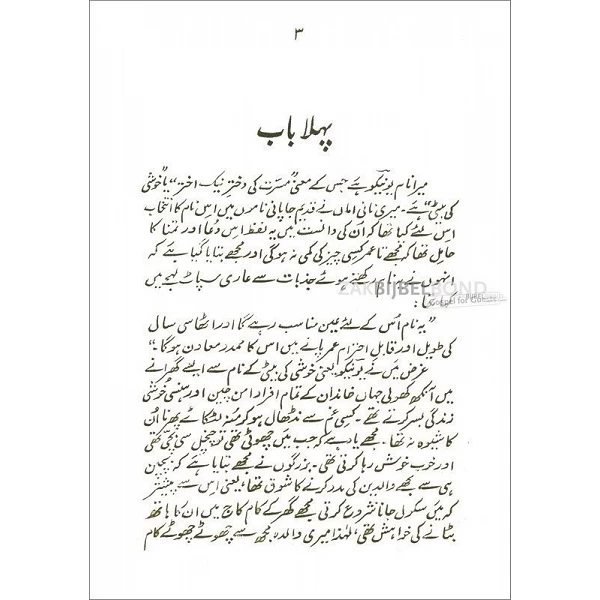 ۳
پہلا باب
میرا نام یونیکو ہے جس کے معنی ”مسرت کی دختر نیک اختر“ یا ”خوشی
کی بیٹی“ ہے۔ میری نانی اماں نے قدیم جاپانی ناموں میں اس نام کا انتخاب
اس لئے کیا تھا کہ اُن کی دانست میں یہ لفظ اِس دُعا اور تمنا کا
حامل تھا کہ مجھے تا عمر کسی چیز کی کمی نہ ہو گی اور مجھے بتایا گیا ہے کہ
انہوں نے یہ نام رکھتے ہوئے جذبات سے عاری سپاٹ لہجے میں
کہا تھا:
ZAKBIJBELBOND
”یہ نام اُس کے لئے عین مناسب رہے گا اور اٹھاسی سال
کی طویل اور قابلِ احترام عمر پانے میں اس کا ممد و معاون ہو گا۔“
غرض میں نے یونیکو یعنی خوشی کی بیٹی کے نام سے ایسے گھرانے
میں آنکھ کھولی جہاں خاندان کے تمام افراد امن چین اور ہنسی خوشی
زندگی بسر کرتے تھے۔ کسی غم سے نڈھال ہو کر مُنہ لٹکائے پھرنا اُن
کا شیوہ نہ تھا۔ مجھے یاد ہے کہ جب میں چھوٹی تھی تو چنچل سی بچی تھی
اور خوب خوش رہا کرتی تھی۔ بزرگوں نے مجھے بتایا ہے کہ بچپن
ہی سے مجھے والدین کی مدد کرنے کا شوق تھا، یعنی اس سے پیشتر
کہ میں سکول جانا شروع کرتی مجھے گھر کے کام کاج میں ان کا ہاتھ
بٹانے کی خواہش تھی، لہٰذا میری والدہ مجھ سے چھوٹے چھوٹے کام